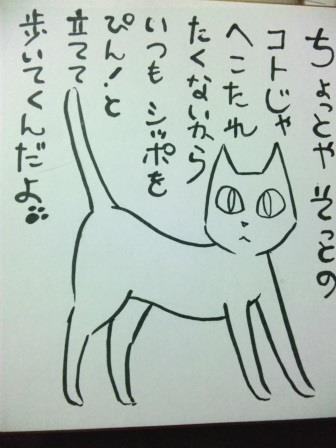 ちょっとやそっとの
コトじゃ
へこたれ
たくないから
いつも シッポを
ぴん!と
立てて
歩いてくんだよ